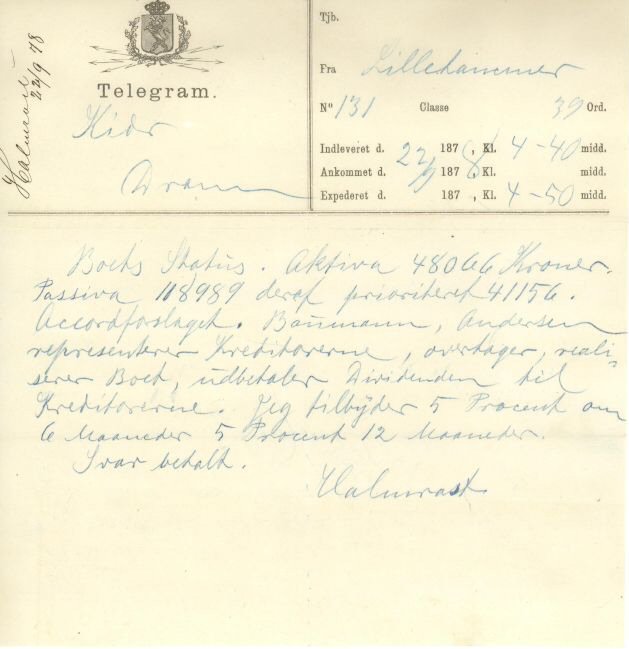 Halmrast
22/9 78
Telegram.
Kiær
Dramn
Tjb.
Fra Lillehammer
No 131 Classe 39 Ord.
Indleveret d. 22 187 , Kl. 4-40 midd.
Ankommet d. /9 187 8, Kl. midd.
Expederet d. 187 , Kl. 4-50 midd.
Boets Status. Aktiva 48066 Kroner.
Passiva 118989 deraf prioriteret 41156.
Accordforslaget. Baumann, Andersen
representerer Kreditorerne, overtager, reali-
serer Boet, udbetaler Dividenden til
Kreditorerne. Jeg tilbyder 5 Procent om
6 Maaneder 5 Procent 12 Maaneder.
Svar betalt.
Halmrast